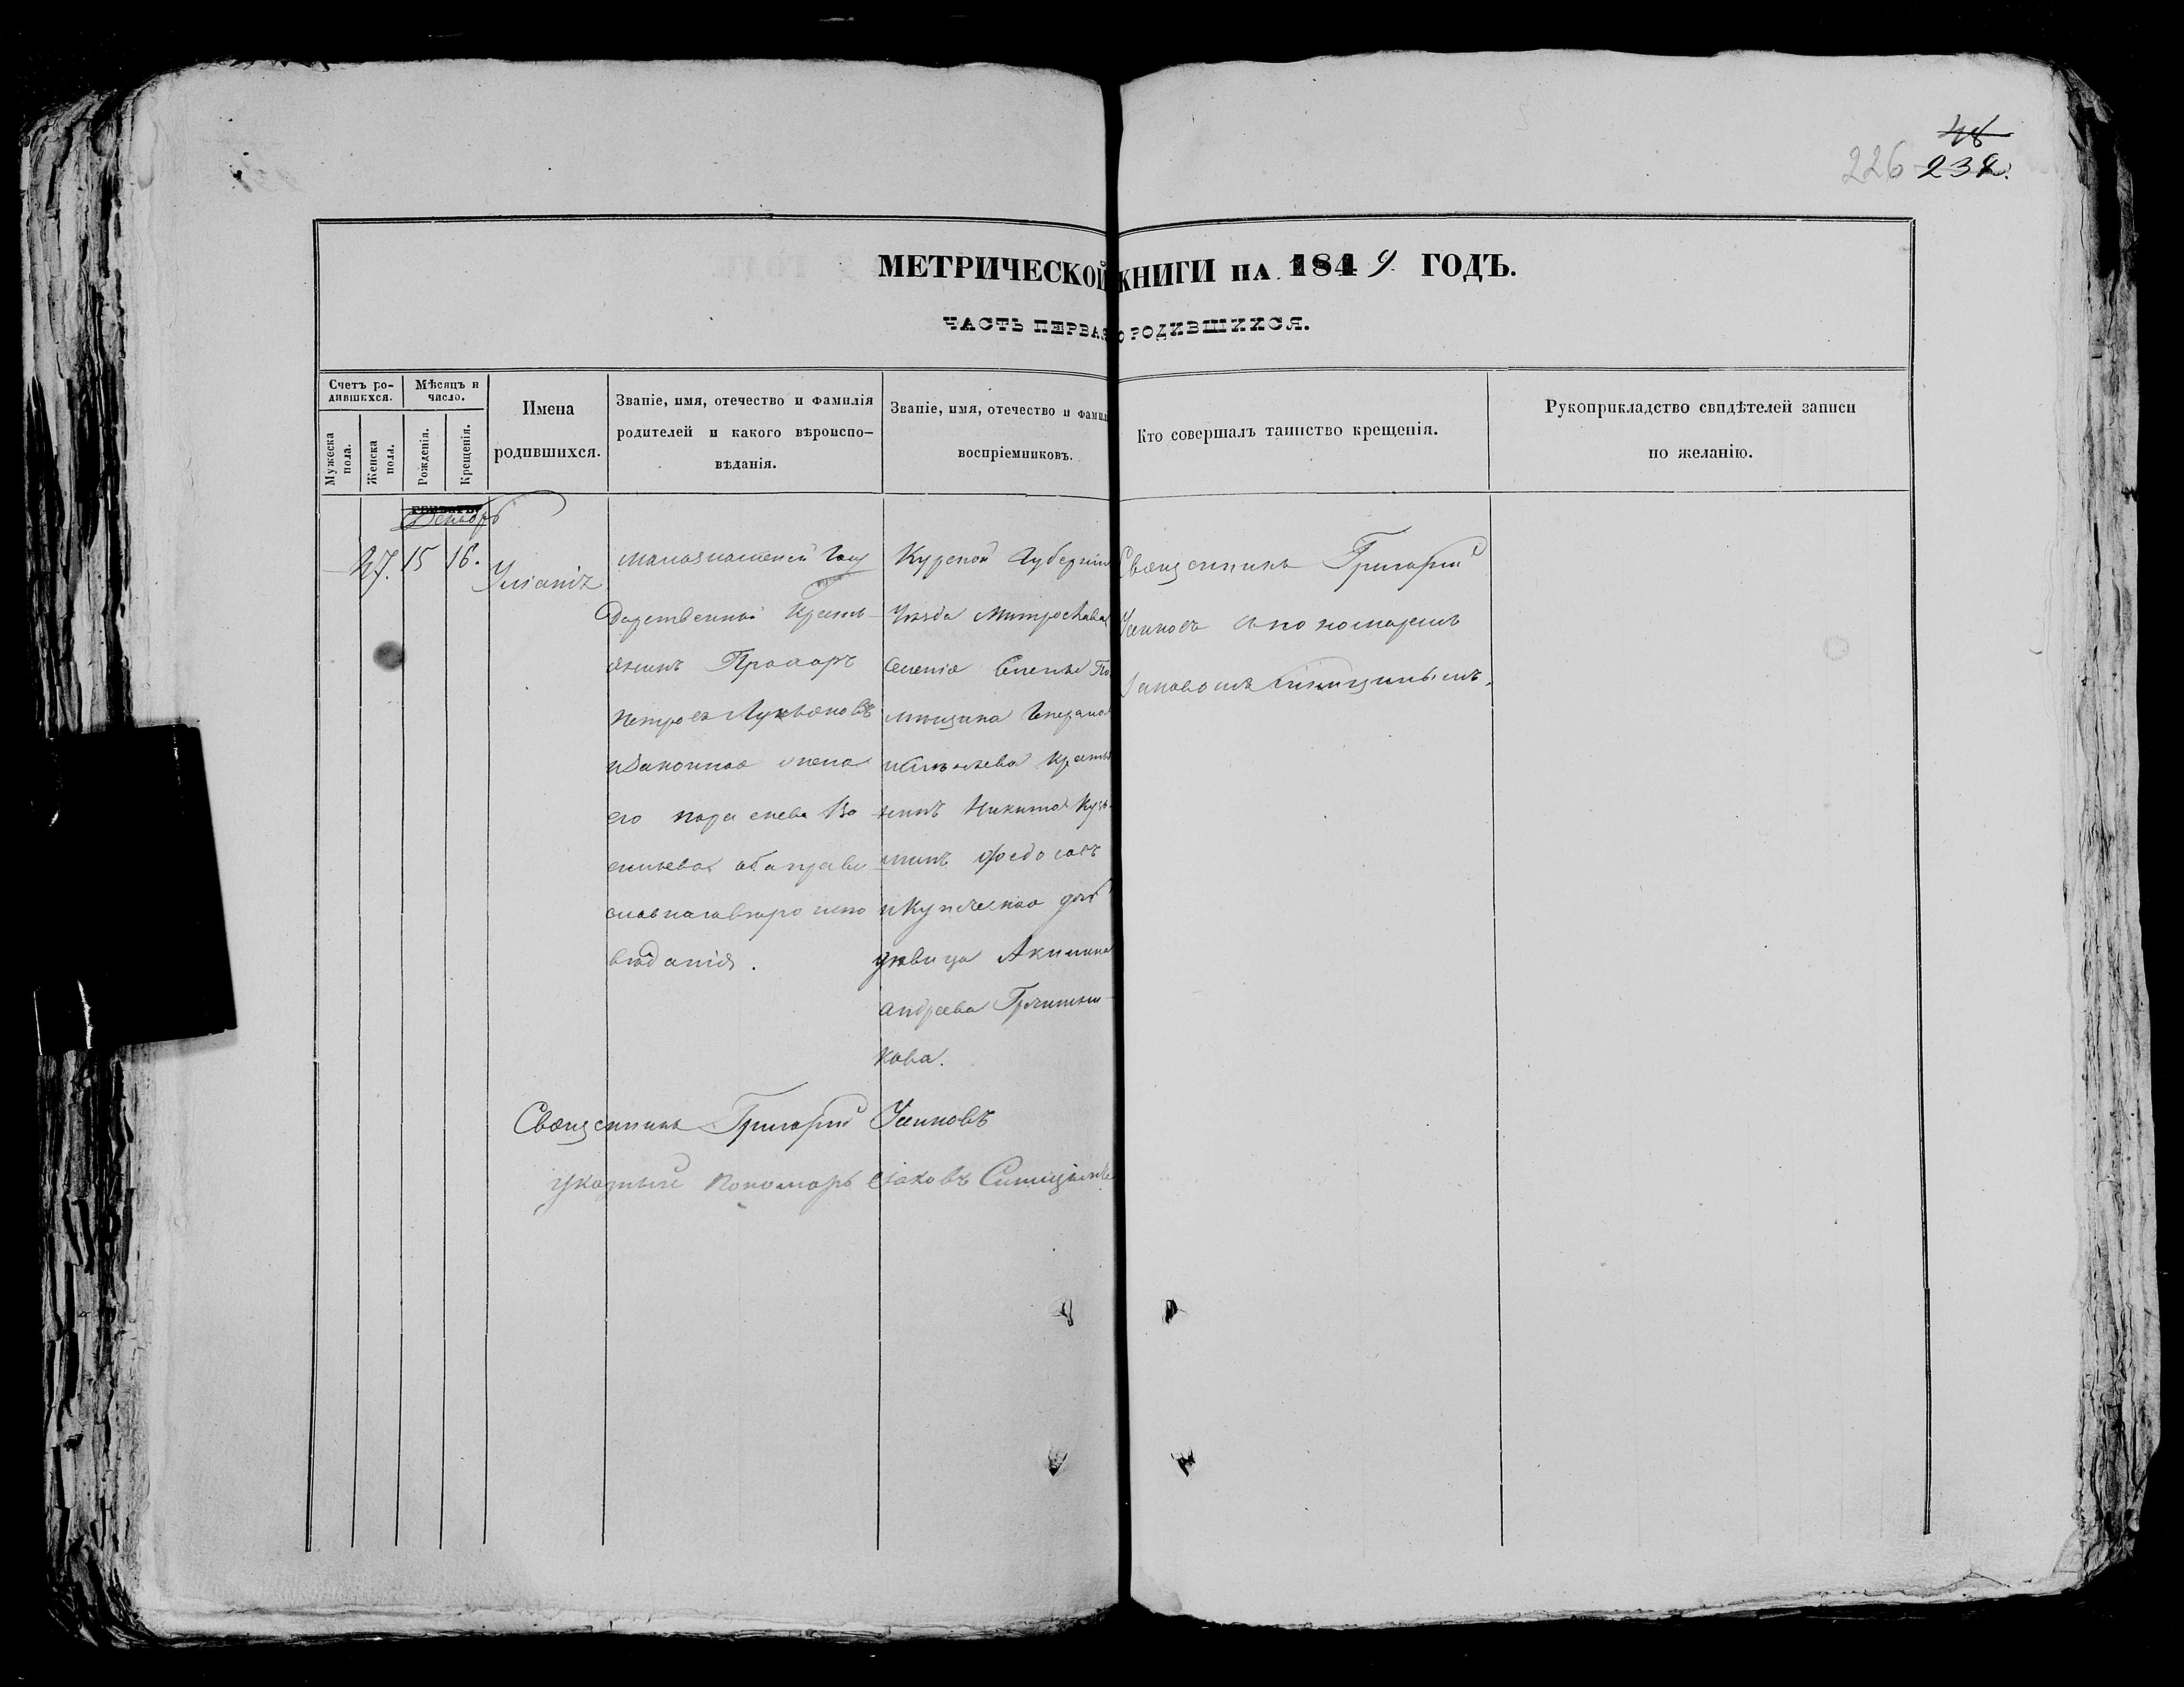 48
226 232.
МЕТРИЧЕСКОЙ КНИГИ НА 1849 ГОДЪ.
ЧАСТЬ ПЕРВАЯ О РОДИВШИХСЯ.
Счетъ ро-
дившихся.
Мужеска
пола.
Женска
пола.
Мѣсяцъ и
число.
Рожденія.
Крещенія.
Имена
родившихся.
Званіе, имя, отечество и фамилія
родителей и какого вѣроиспо-
вѣданія.
Званіе, имя, отечество и фамил
воспріемниковъ.
Кто совершалъ таинство крещенія.
Рукоприкладство свидѣтелей записи
по желанію.
Декабрь
27. 15 16.
Уліанія
Госу
дарственный Кресть-
янинъ Прохоръ
Петровъ Лукьяновъ
изаконная жена
его Параскева Ва
сильева оба праве
славнаго вѣроиспо
вѣданія.
Курской Губерніи
Уѣзда
селенія
Крестья
нинъ Никита Кузь-
минъ Федосовъ
иКупеческая дочь
дѣвица Акилина
Андреева
кова.
Священникъ Григорій
Усиновъ спономаремъ
Іаковомъ Синицынымъ.
Священникъ Григорій Усиновъ
указный пономарь Іаковъ Синицынъ